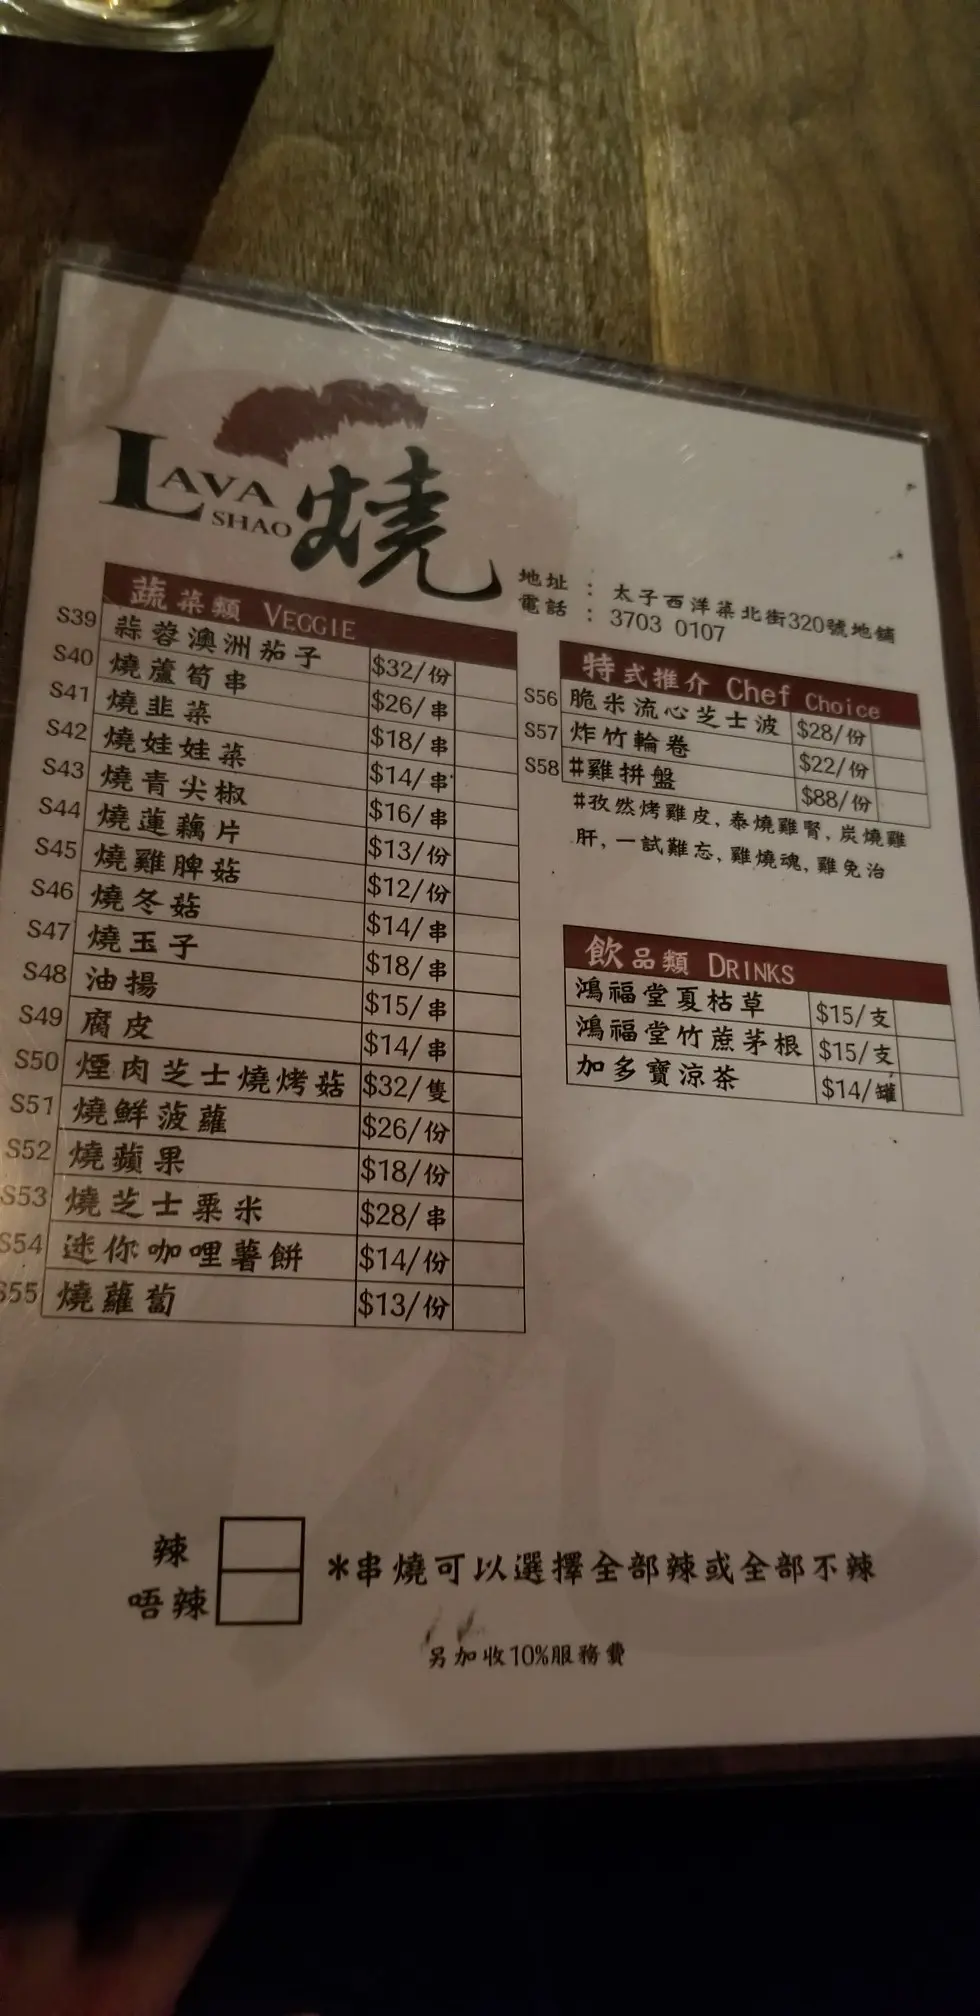 LAVA
SHAO 燒
地址 : 太子西洋菜北街320號地鋪
電話 : 3703 0107
蔬菜類 VEGGIE
S39 蒜蓉澳洲茄子 $32/份
S40 燒蘆筍串 $26/串
S41 燒韭菜 $18/串
S42 燒娃娃菜 $14/串
S43 燒青尖椒 $16/串
S44 燒蓮藕片 $13/份
S45 燒雞脾菇 $12/份
S46 燒冬菇 $14/串
S47 燒玉子 $18/串
S48 油揚 $15/串
S49 腐皮 $14/串
S50 煙肉芝士燒烤菇 $32/隻
S51 燒鮮菠蘿 $26/份
S52 燒蘋果 $18/份
S53 燒芝士粟米 $28/串
S54 迷你咖哩薯餅 $14/份
S55 燒蘿蔔 $13/份
特式推介 Chef Choice
S56 脆米流心芝士波 $28/份
S57 炸竹輪卷 $22/份
S58 #雞拼盤 $88/份
#孜然烤雞皮, 泰燒雞腎, 炭燒雞
肝, 一試難忘, 雞燒魂, 雞免治
飲品類 DRINKS
鴻福堂夏枯草 $15/支
鴻福堂竹蔗茅根 $15/支
加多寶涼茶 $14/罐
辣
唔辣
*串燒可以選擇全部辣或全部不辣
另加收10%服務費